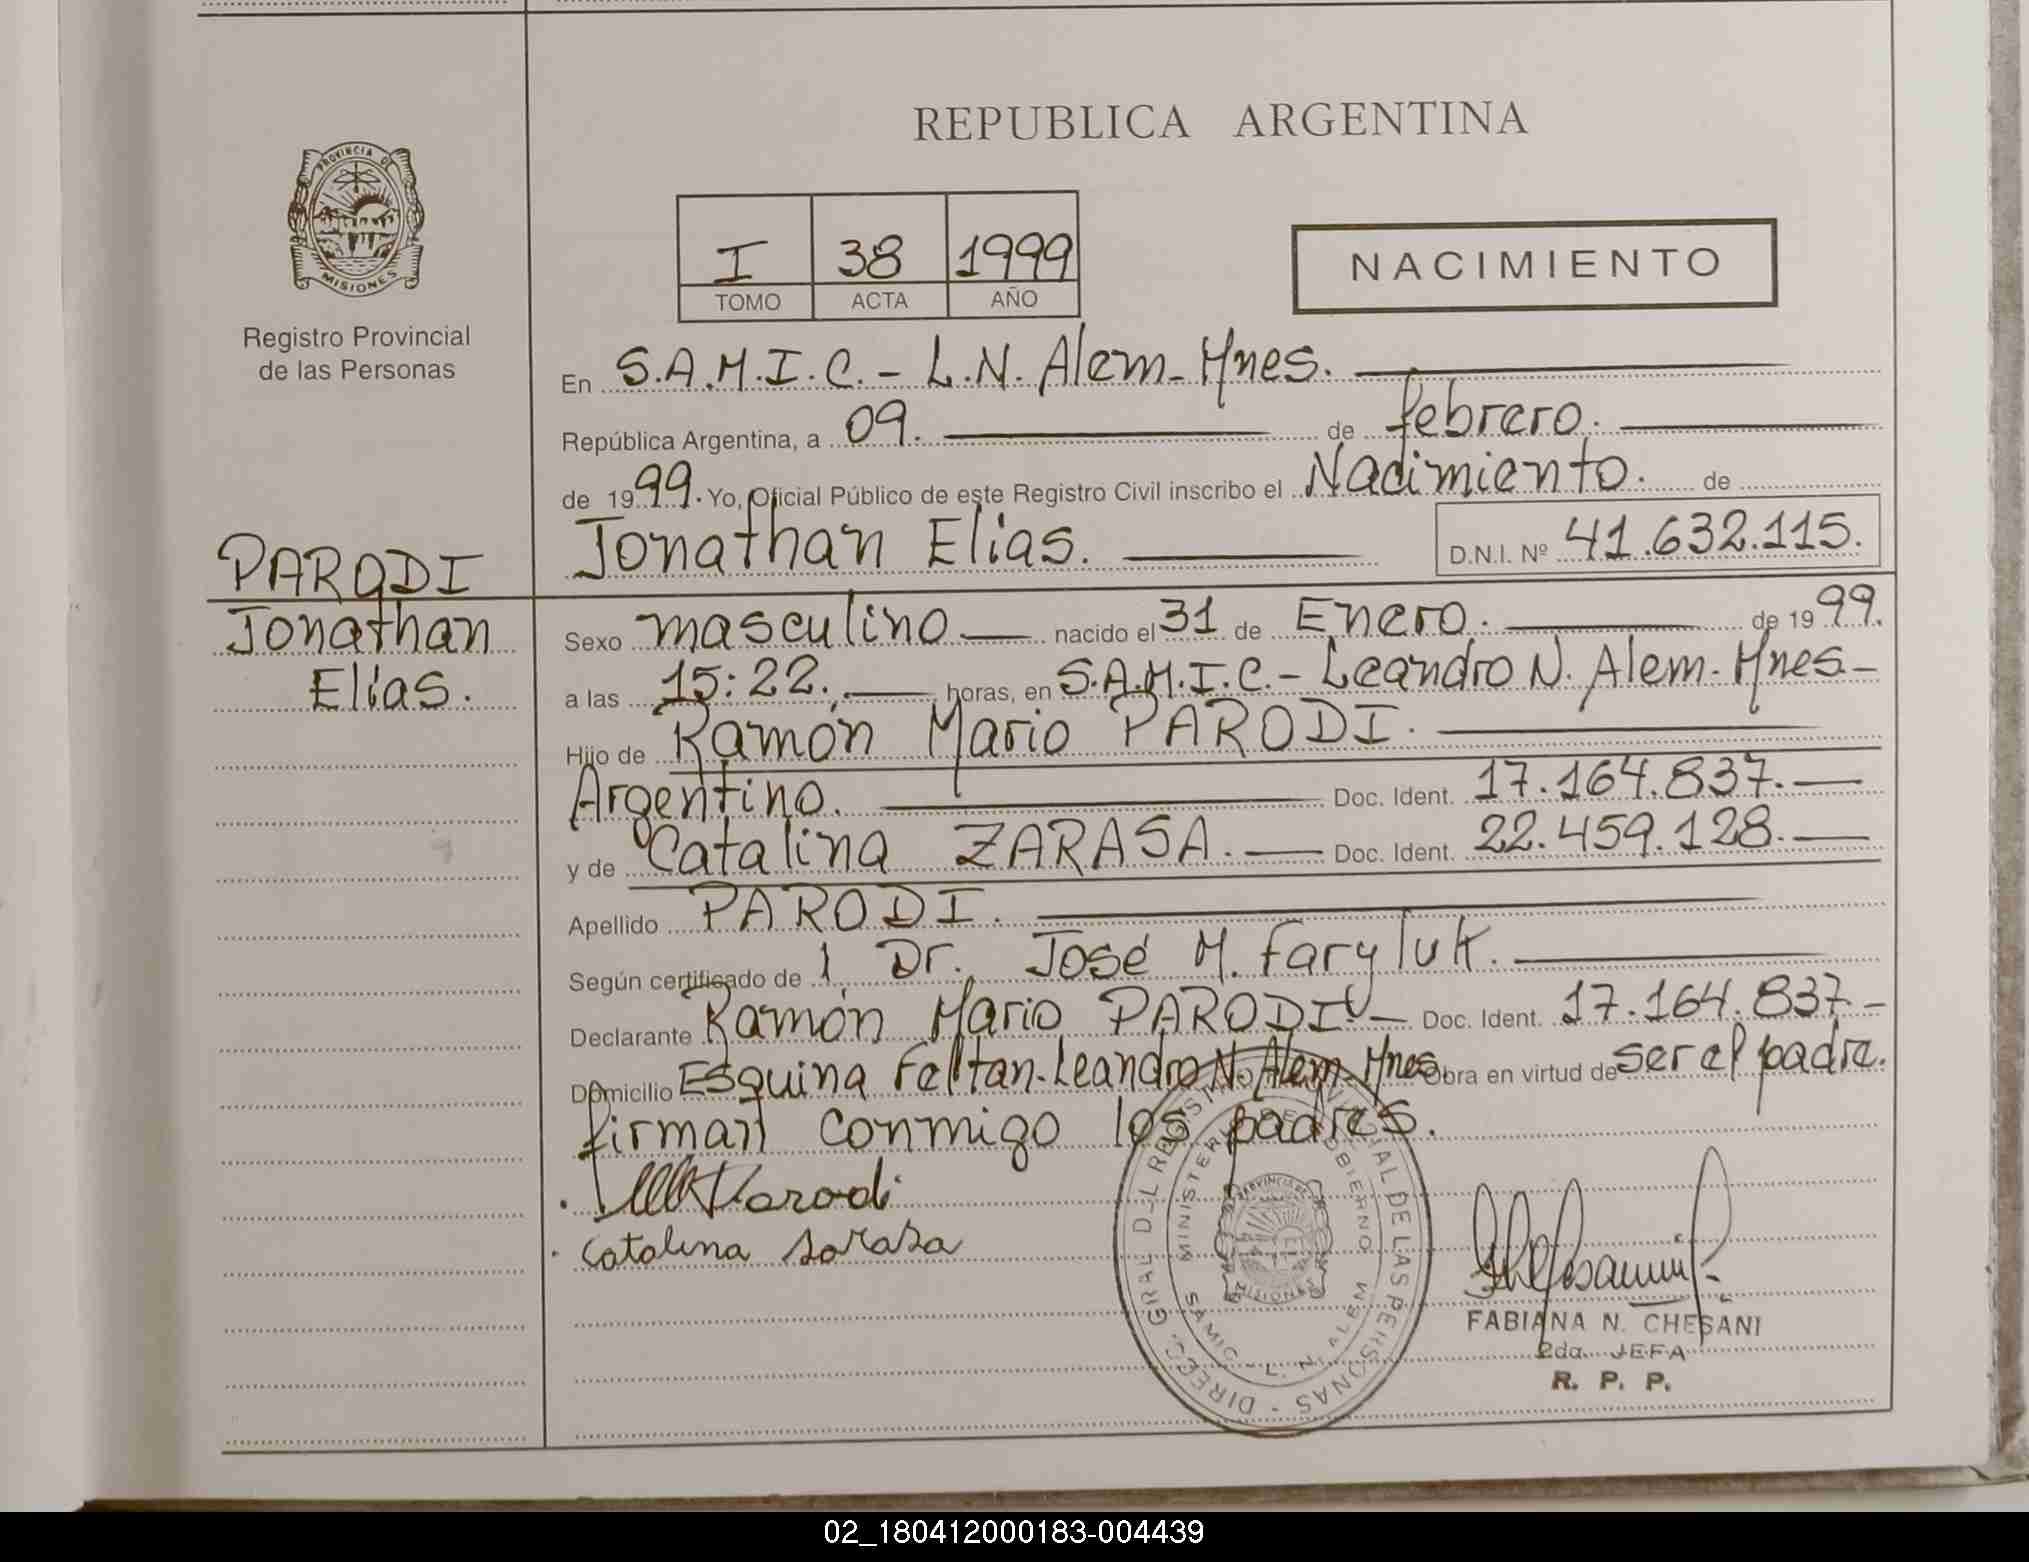 REPUBLICA ARGENTINA
PROVINCIA DE
MISIONES
Registro Provincial
de las Personas
I 38 1999
TOMO ACTA AÑO
NACIMIENTO
En S.A.M.I.C. - L.N. Alem - Mnes.
República Argentina, a 09. de febrero.
de 1999. Yo, Oficial Público de este Registro Civil inscribo el Nacimiento. de
Jonathan Elias. D.N.I. Nº 41.632.115.
PARODI
Jonathan
Elías.
Sexo masculino nacido el 31 de Enero. de 1999.
a las 15:22. horas, en S.A.M.I.C. - Leandro N. Alem - Mnes -
Hijo de Ramón Mario PARODI.
Argentino. Doc. Ident. 17.164.837.
y de Catalina ZARASA. Doc. Ident. 22.459.128.
Apellido PARODI.
Según certificado de l Dr. José M. Faryluk.
Declarante Ramón Mario PARODI - Doc. Ident. 17.164.837 -
Domicilio Esquina Feltan - Leandro N. Alem Mnes. Obra en virtud de ser el padre.
firman conmigo los padres.
Parodi
Catalina Sarasa
DIREC. GRAL DEL REGISTRO PROVINCIAL DE LAS PERSONAS -
MINISTERIO DE GOBIERNO
SAMIC - L. N. ALEM
PROVINCIA DE
MISIONES
FABIANA N. CHESANI
2da. JEFA
R. P. P.
02_180412000183-004439